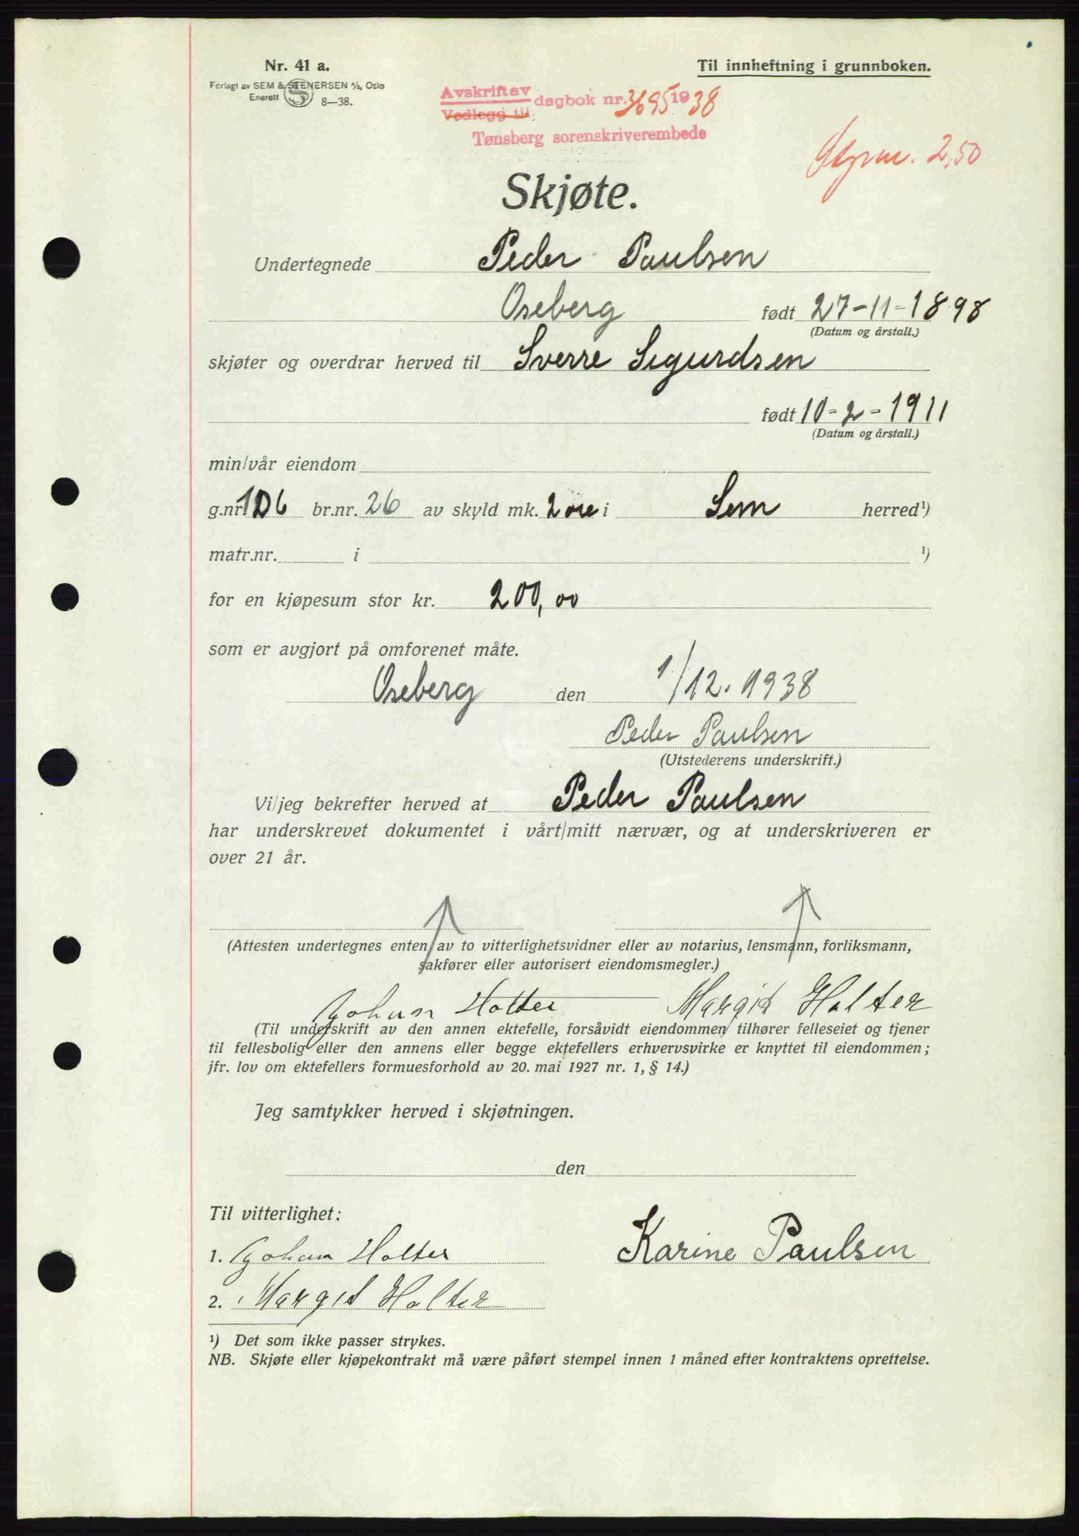 Nr. 41 a.
Til innheftning i grunnboken.
Forlagt av SEM & STENERSEN A/S, Oslo
Enerett S 8—38.
Avskrift av
Vedlegg til dagbok nr. 3695 1938
Tønsberg sorenskriverembede
2,50
Skjøte.
Undertegnede Peder Paulsen
Oseberg født 27-11-1898
(Datum og årstall.)
skjøter og overdrar herved til Sverre Sigurdsen
født 10-2-1911
(Datum og årstall.)
min/vår eiendom
g.nr. 106 br.nr. 26 av skyld mk. 2 øre i Sem herred¹)
matr.nr. i ¹)
for en kjøpesum stor kr. 200,00
som er avgjort på omforenet måte.
Oseberg den 1/12. 1938
Peder Paulsen
(Utstederens underskrift.)
Vi/jeg bekrefter herved at Peder Paulsen
har underskrevet dokumentet i vårt/mitt nærvær, og at underskriveren er
over 21 år.
(Attesten undertegnes enten av to vitterlighetsvidner eller av notarius, lensmann, forliksmann,
sakfører eller autorisert eiendomsmegler.)
Johan Holter Margit Holter
(Til underskrift av den annen ektefelle, forsåvidt eiendommen tilhører felleseiet og tjener
til fellesbolig eller den annens eller begge ektefellers erhvervsvirke er knyttet til eiendommen;
jfr. lov om ektefellers formuesforhold av 20. mai 1927 nr. 1, § 14.)
Jeg samtykker herved i skjøtningen.
den
Til vitterlighet:
Karine Paulsen
1. Johan Holter
2. Margit Holter
¹) Det som ikke passer strykes.
NB. Skjøte eller kjøpekontrakt må være påført stempel innen 1 måned efter kontraktens oprettelse.